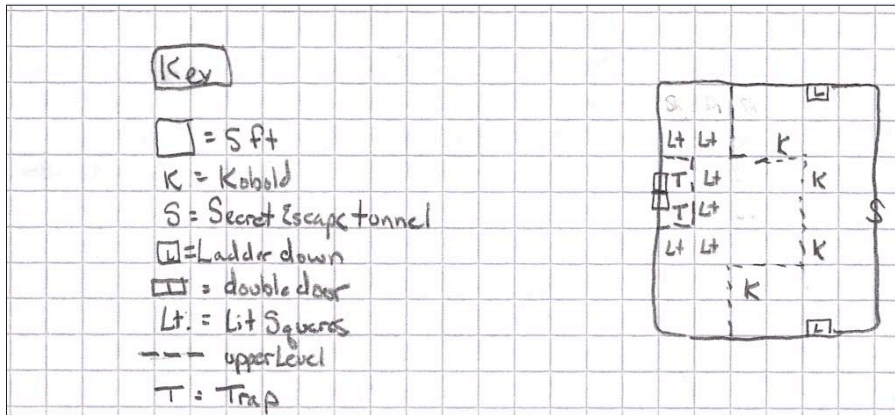 Key
= 5 ft
K = Kobold
S = Secret Escape tunnel
L = Ladder down
= double door
Lt. = Lit Squares
--- upper Level
T = Trap
L
Lt Lt K
T Lt K
T Lt S
Lt Lt K
K
L